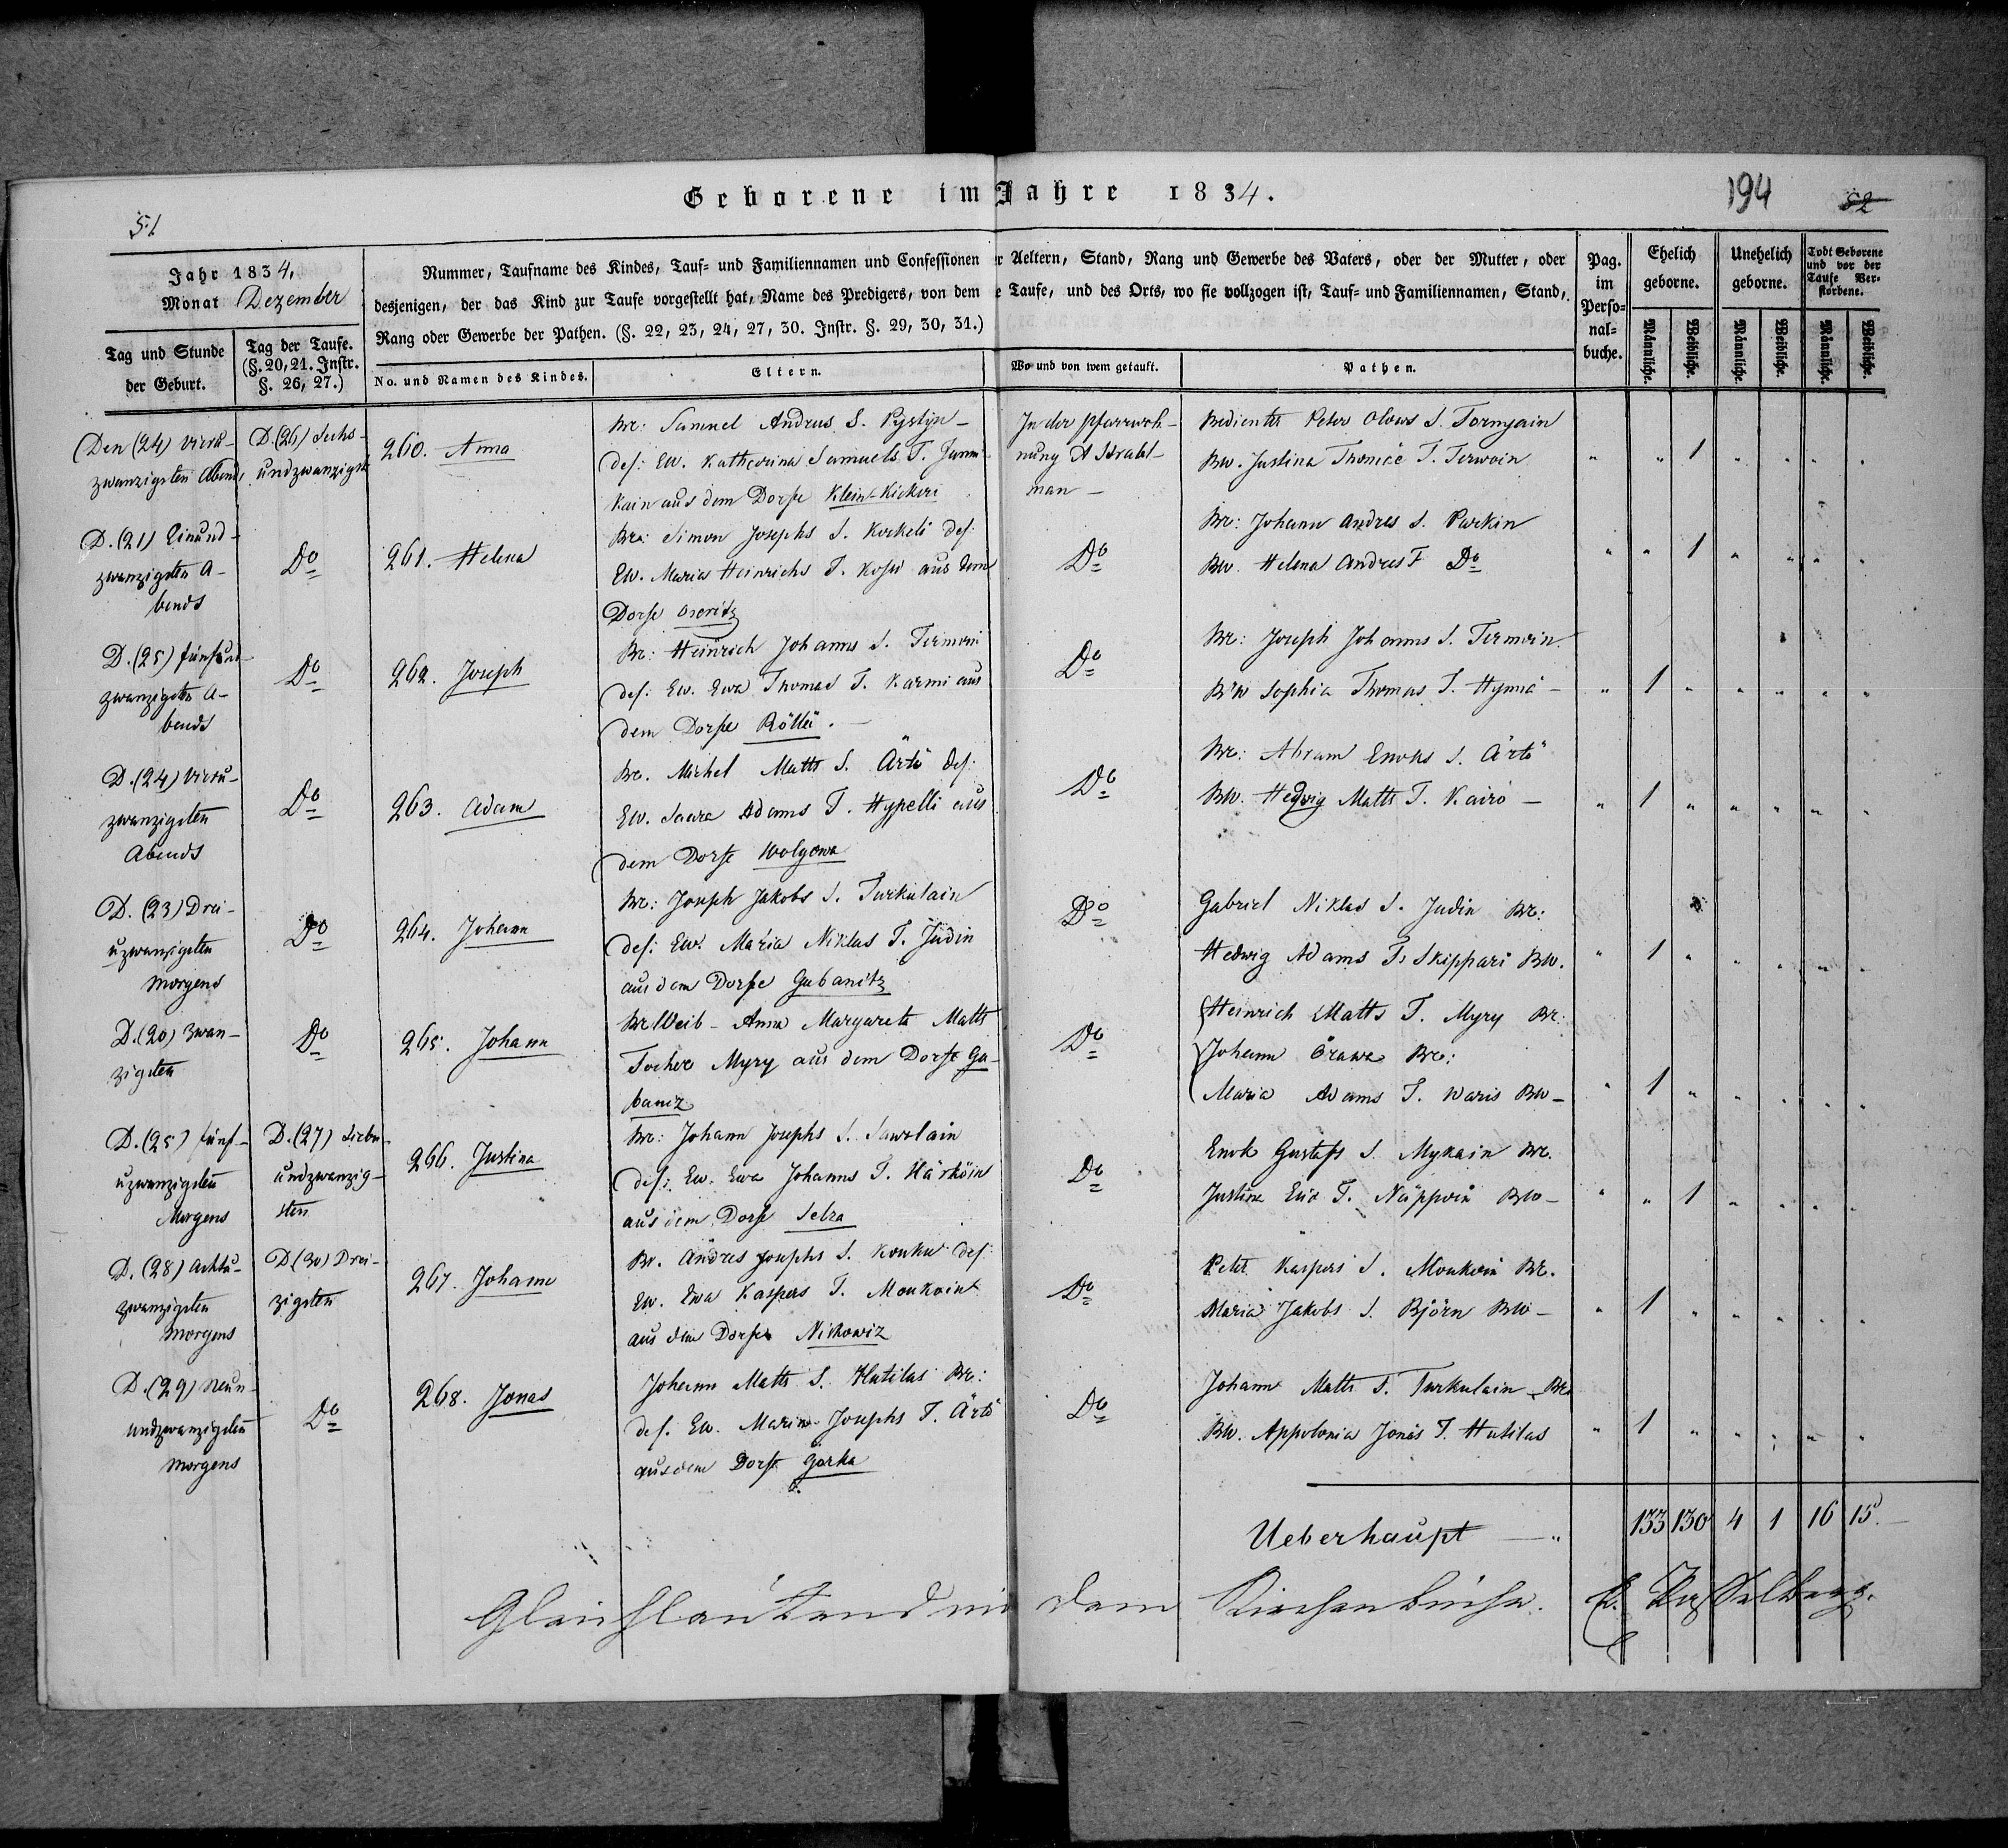 Geborene im Jahre 1834.
194
52
51
Jahr 1834,
Monat Dezember
Tag und Stunde der Geburt.
Tag der Taufe. (§. 20, 21. Instr. §. 26, 27.)
Nummer, Taufname des Kindes, Tauf- und Familiennamen und Confessionen der Aeltern, Stand, Rang und Gewerbe des Vaters, oder der Mutter, oder
desjenigen, der das Kind zur Taufe vorgestellt hat, Name des Predigers, von dem e Taufe, und des Orts, wo sie vollzogen ist, Tauf- und Familiennamen, Stand,
Rang oder Gewerbe der Pathen. (§. 22, 23, 24, 27, 30. Instr. §. 29, 30, 31.)
No. und Namen des Kindes.
Eltern.
Wo und von wem getauft.
Pathen.
Pag. im Perso-nal-buche.
Ehelich geborne.
Unehelich geborne.
Todt Geborene und vor der Taufe Ver-storbene.
Männliche. Weibliche. Männliche. Weibliche. Männliche. Weibliche.
Den (24) vieru-
zwanzigsten Abends
D. (26) Sechs-
undzwanzigst
260. Anna
Br: Samuel Andreas S.
des: Ew. Katharina Samuels T.
kain aus dem Dorfe Klein-Kickeri
In der Pfarrwoh-
nung A Strahl-
man -
Bedienter Peter Olows S.
Bw. Justina T.
1
D. (21) Einund-
zwanzigsten A-
bends
Do
261. Helena
Br: Simon Josephs S. Korkeli des:
Ew. Maria Heinrichs T. aus dem
Dorfe Oseritz
Do
Br: Johann Andres S. Parkin
Bw. Helena Andres T Do
1
D. (25) fünfund-
zwanzigsten A-
bends
Do
262. Joseph
Br: Heinrich Johanns S.
des: Ew. Ewa Thomas T. Karmi aus
dem Dorfe Röttli.
Do
Br: Joseph Johanns S.
Bw Sophia Thomas T.
1
D. (24) vieru-
zwanzigsten
Abends
Do
263. Adam
Br. Michel Matts S. Ärtö des:
Ew. Saara Adams T. Hypelli aus
dem Dorfe Wolgowa
Do
Br: Abram Enoks S. Ärtö
Bw. Hedwig Matts T. Kairo -
1
D. (23) Drei-
uzwanzigsten
Morgens
Do
264. Johann
Br: Joseph Jakobs S. Turkulain
des: Ew. Maria Niklas T. Judin
aus dem Dorfe Gubanitz
Do
Gabriel Niklas S. Judin Br:
Hedwig Adams T. Skippari Bw.
1
D. (20) Zwan-
zigsten
Do
265. Johann
Br Weib - Anna Margareta Matts
Tochter Myry aus dem Dorfe Gu-
banitz
Do
Heinrich Matts T. Myry Br:
Johann Örawa Br:
Maria Adams T. Waris Bw -
1
D. (25) fünf-
uzwanzigsten
Morgens
D. (27) Sieben-
undzwanzig-
sten
266. Justina
Br: Johann Josephs S. Sawolain
des: Ew. Ewa Johanns T. Härköin
aus dem Dorfe Selza
Do
Enok Gustafs S. Mykain Br.
Justina T. Bw -
1
D. (28) Achtu-
zwanzigsten
Morgens
D (30) Drei-
zigsten
267. Johann
Br. Andres Josephs S. des:
Ew. Ewa Kaspers T.
aus dem Dorfe Nikowiz
Do
Peter Kaspers S. Br.
Maria Jakobs S. Björn Bw -
1
D. (29) Neun-
undzwanzigsten
Morgens
Do
268. Jonas
Johann Matts S. Hutilas Br:
des. Ew. Maria Josephs T. Ärtö
aus dem Dorfe Gorka
Do
Johann Matts S. Turkulain Br
Bw. Appolonia Jonas T. Hutilas
1
Ueberhaupt
133 130 4 1 16 15.
Gleichlautend mit dem Kirchenbuche.